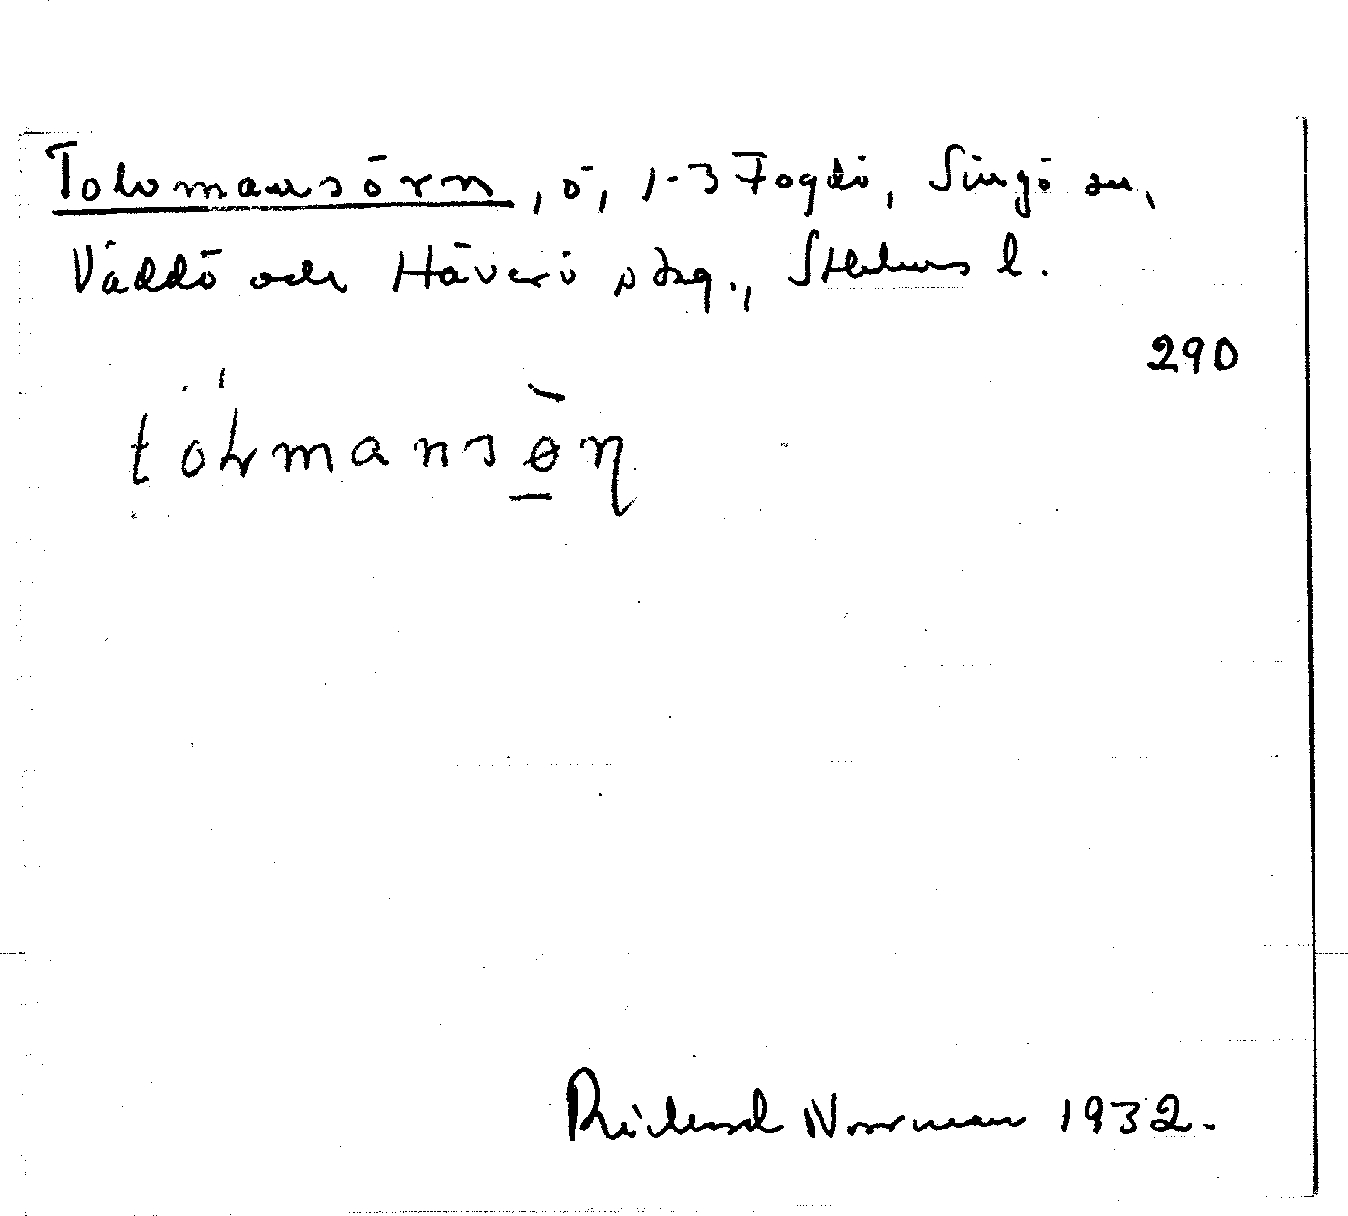 Tolvmansörn, ö, 1-3 Fogdö, Singö sn,
Väddö och Häverö skg., Sthlms l.
290
Rickard Norrman 1932.